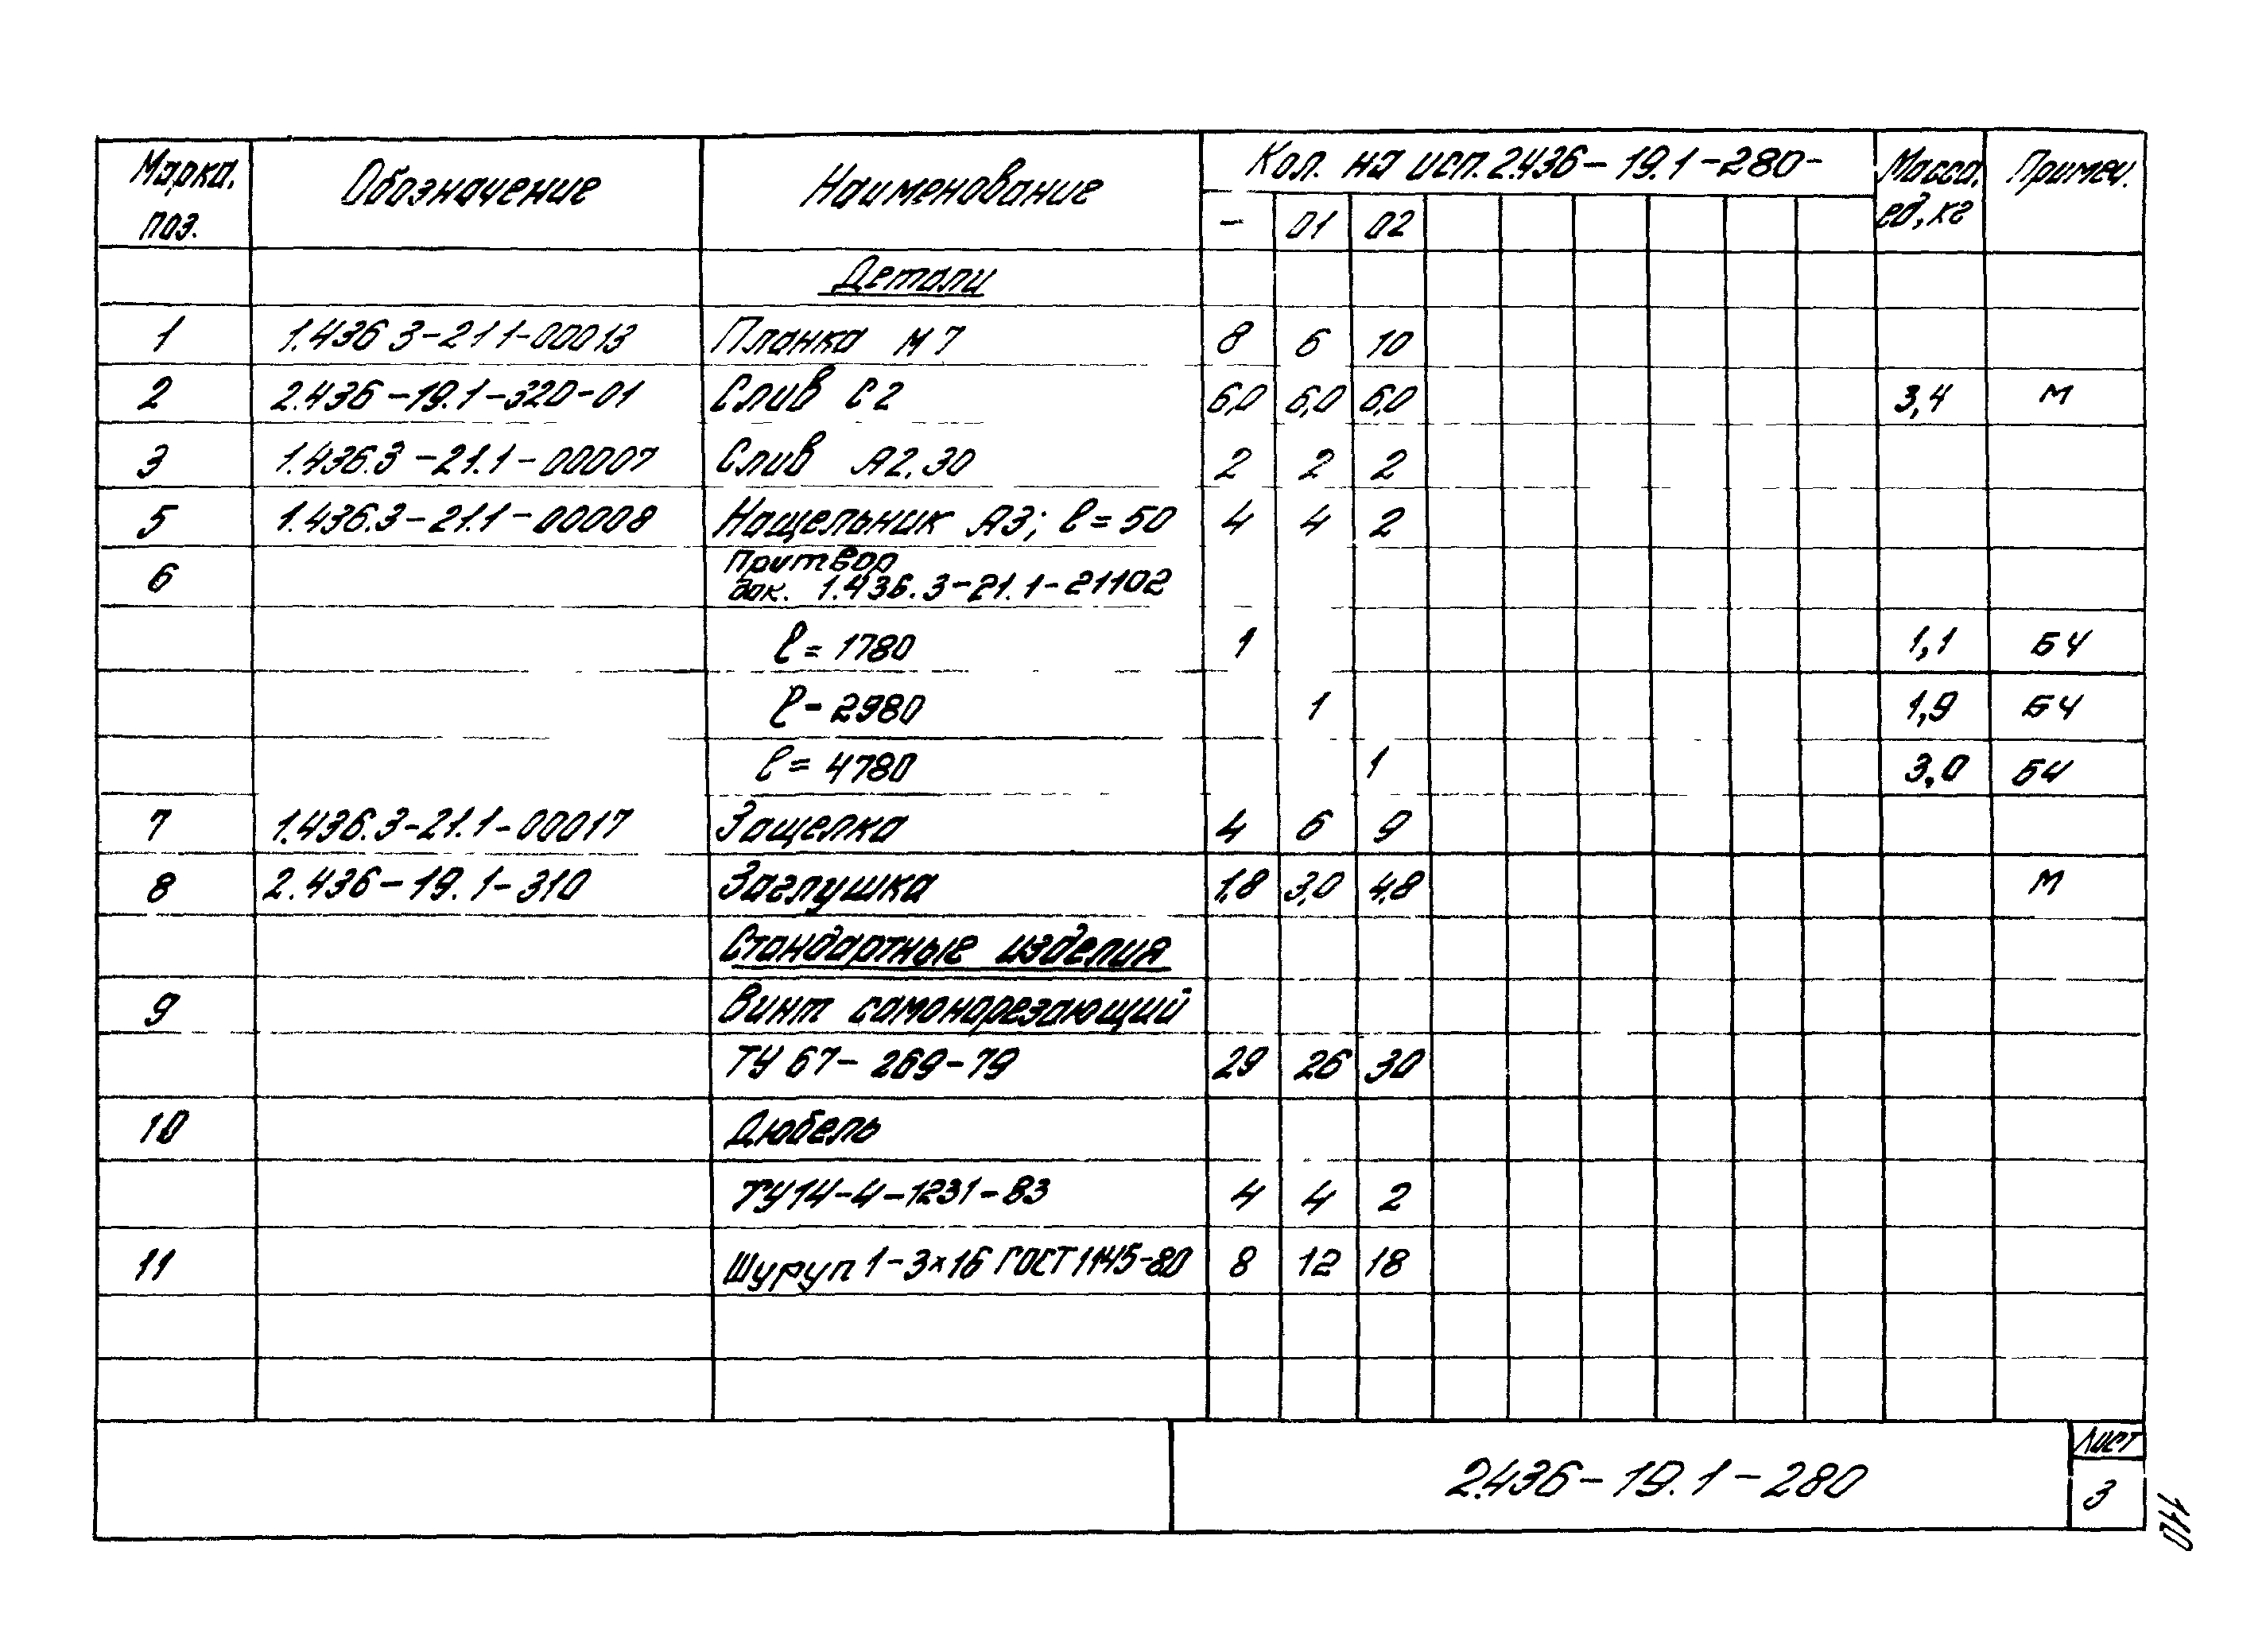 Марка, поз. Обозначение Наименование Кол. на исп. 2.436-19.1-280- Масса, ед, кг Примеч.
- 01 02
Детали
1 1.436 3-21 1-00013 Планка М7 8 6 10
2 2.436-19.1-320-01 Слив С2 6,0 6,0 6,0 3,4 М
3 1.436.3-21.1-00007 Слив А2.30 2 2 2
5 1.436.3-21.1-00008 Нащельник А3; ℓ=50 4 4 2
6 Притвор
док. 1.436.3-21.1-21102
ℓ=1780 1 1,1 БЧ
ℓ-2980 1 1,9 БЧ
ℓ=4780 1 3,0 БЧ
7 1.436.3-21.1-00017 Защелка 4 6 9
8 2.436-19.1-310 Заглушка 1,8 3,0 4,8 М
Стандартные изделия
9 Винт самонарезающий
ТУ 67-269-79 29 26 30
10 Дюбель
ТУ14-4-1231-83 4 4 2
11 Шуруп 1-3×16 ГОСТ 1145-80 8 12 18
2.436-19.1-280
Лист
3
110